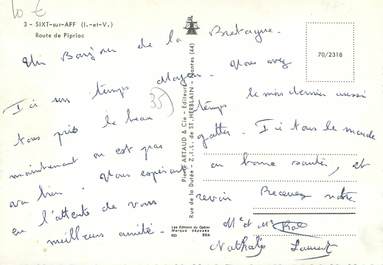 10 €
3 - SIXT-sur-AFF (I.-et-V.)
Route de Pipriac
Un Bonjour de la Bretagne.
Ici un temps moyen. Vous avez
tous près le beau temps le mois dernier aussi
maintenant on est gatter. Ici tous le monde
va bien. Vous en bonne santé, et
en l'attente de vous revoir Recevez notre
meilleurs amitié.
Mr et Mme
Nathalie Laurent
35
70/2318
Pierre ARTAUD & Cie - Editeurs
Rue de la Dutée - Z.I.L. de ST-HERBLAIN - Nantes (44)
Les Editions du Gabier